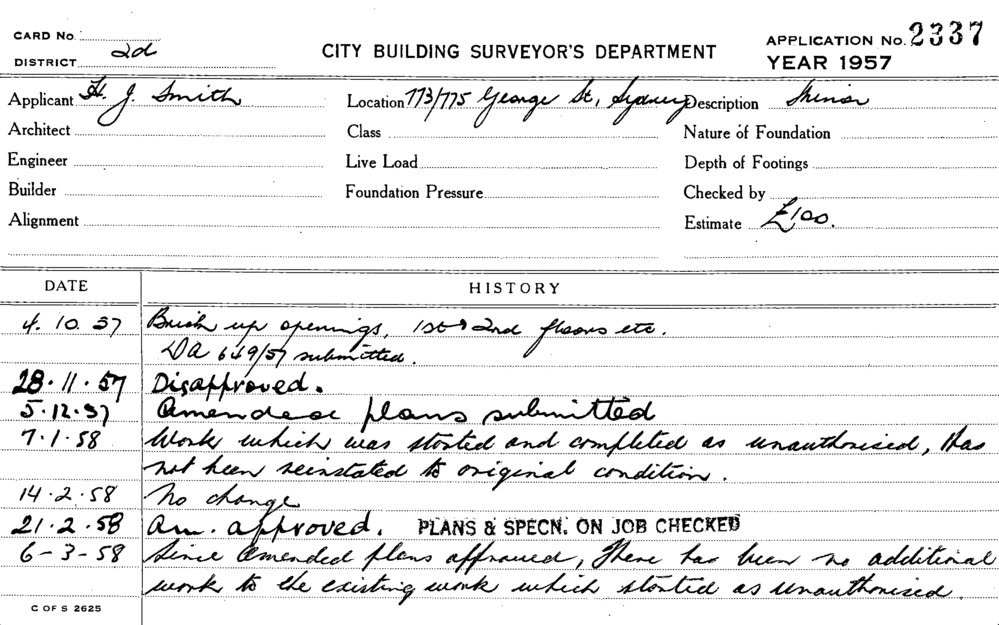 CARD No.
CITY BUILDING SURVEYOR'S DEPARTMENT
APPLICATION No. 2337
DISTRICT 2d
YEAR 1957
Applicant H. J. Smith
Location 773/775 George St, Sydney
Description Minor
Architect
Class
Nature of Foundation
Engineer
Live Load
Depth of Footings
Builder
Foundation Pressure
Checked by
Alignment
Estimate £100.
DATE
HISTORY
4. 10. 57 Brick up openings, 1st & 2nd floors etc.
DA 649/57 submitted.
28. 11. 57 Disapproved.
5. 12. 57 Amended plans submitted
7. 1. 58 Work which was started and completed as unauthorised, has
not been reinstated to original condition.
14. 2. 58 No change
21. 2. 58 Am. approved. PLANS & SPECN. ON JOB CHECKED
6 - 3 - 58 Since amended plans approved, there has been no additional
work to the existing work which started as unauthorised.
C OF S 2625